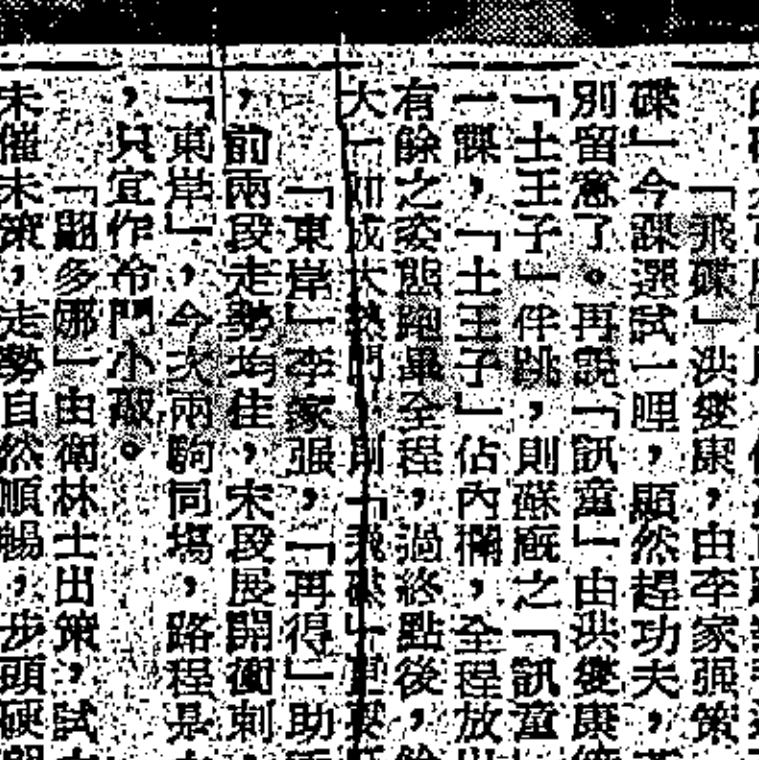 「飛碟」洪燮康，由李家强策
碟」今課選試一哩，顯然趕功夫，
別留意了。再說「訊童」由洪燮康
「士王子」伴跳，則蘇廐之「訊童
一課，「士王子」佔內欄，全程放
有餘之姿態跑畢全程，過終點後，
大「如成大熱門，則「飛碟」更要
「東岸」李家强，「再得」助
，前兩段走勢均佳，末段展開衝刺
「東岸」，今次兩駒同場，路程是
，只宜作冷門小敲。
「翩多娜」由衛林士出策，試
未催未策，走勢自然順暢，步頭硬